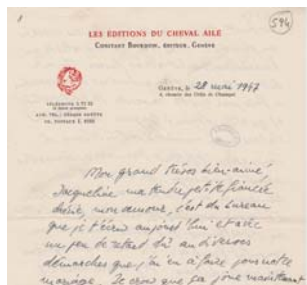 594
LES EDITIONS DU CHEVAL AILÉ
CONSTANT BOURQUIN, EDITEUR, GENÈVE
GENÈVE, le 28 Mars 1947
Mon grand trésor bien-aimé
Jacqueline ma tendre petite fiancée
chérie, mon amour, c'est du bureau
que je t'écris aujourd'hui et avec
un peu de retard dû aux diverses
démarches que j'ai eu à faire pour notre
mariage. Je crois que ça joue maintenant